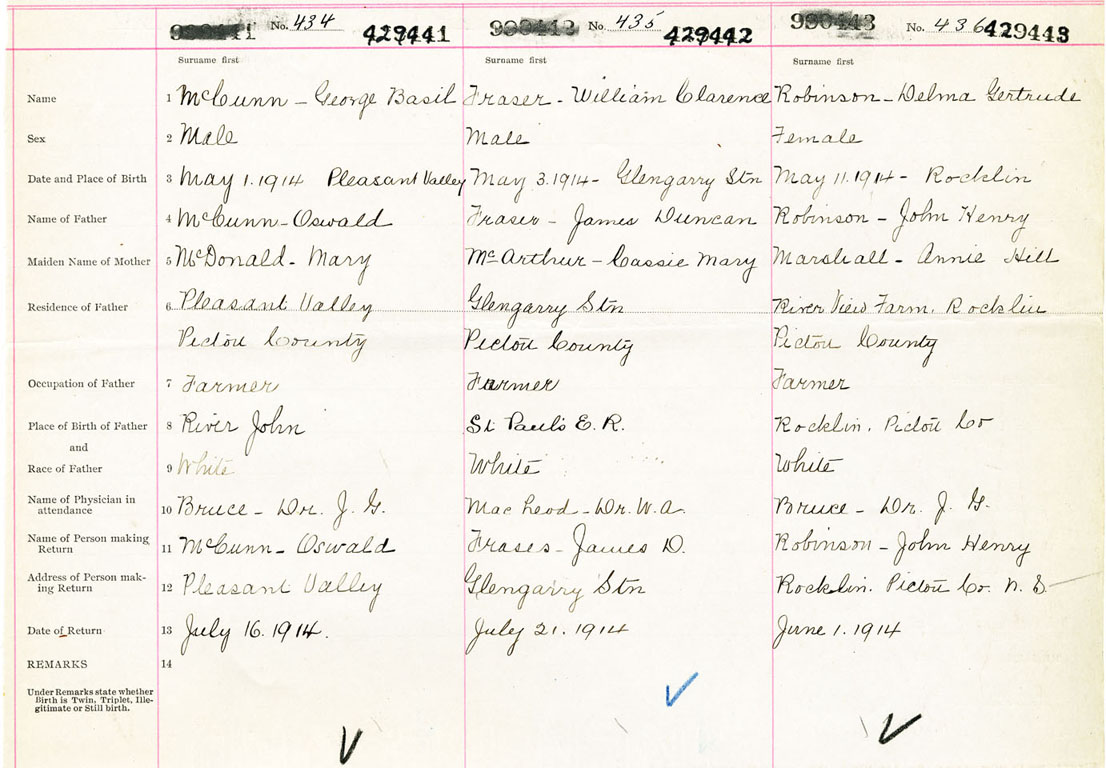 No. 434 429441 No. 435 429442 No. 436 429443
Surname first Surname first Surname first
Name 1 McCunn - George Basil Fraser - William Clarence Robinson - Delma Gertrude
Sex 2 Male Male Female
Date and Place of Birth 3 May 1. 1914 Pleasant Valley May 3. 1914 - Glengarry Stn May 11. 1914 - Rocklin
Name of Father 4 McCunn - Oswald Fraser - James Duncan Robinson - John Henry
Maiden Name of Mother 5 McDonald - Mary McArthur - Cassie Mary Marshall - Annie Hill
Residence of Father 6 Pleasant Valley Glengarry Stn River View Farm. Rocklin
Pictou County Pictou County Pictou County
Occupation of Father 7 Farmer Farmer Farmer
Place of Birth of Father 8 River John St Paul's E. R. Rocklin. Pictou Co
and
Race of Father 9 White White White
Name of Physician in
attendance 10 Bruce - Dr. J. G. MacLeod - Dr. W. A. Bruce - Dr. J. G.
Name of Person making
Return 11 McCunn - Oswald Fraser - James D. Robinson - John Henry
Address of Person mak-
ing Return 12 Pleasant Valley Glengarry Stn Rocklin. Pictou Co. N. S.
Date of Return 13 July 16. 1914. July 21. 1914 June 1. 1914
REMARKS 14
Under Remarks state whether
Birth is Twin, Triplet, Ille-
gitimate or Still birth.